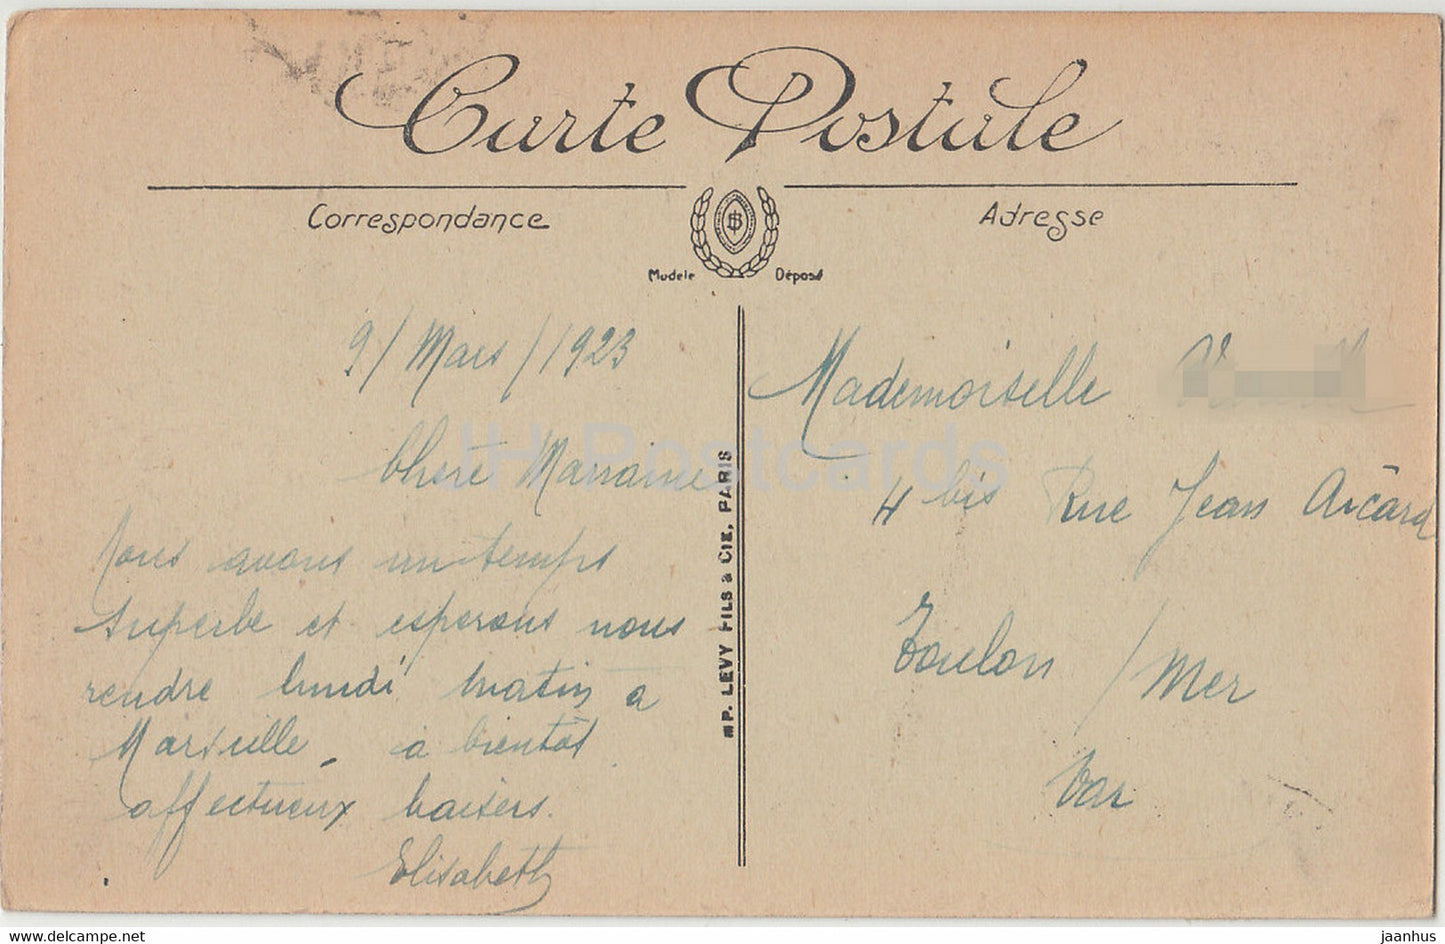 Carte Postale
Correspondance
Adresse
Modèle Déposé
9/ Mars /1923
Chère Marraine
Nous avons un temps
superbe et esperons nous
rendre lundi matin a
Marseille - à bientôt
affectueux baisers.
Elisabeth
MP. LEVY FILS & CIE, PARIS
Mademoiselle
4 bis Rue Jean Aicard
Toulon / Mer
Var
JH Postcards
www.delcampe.net
jaanhus